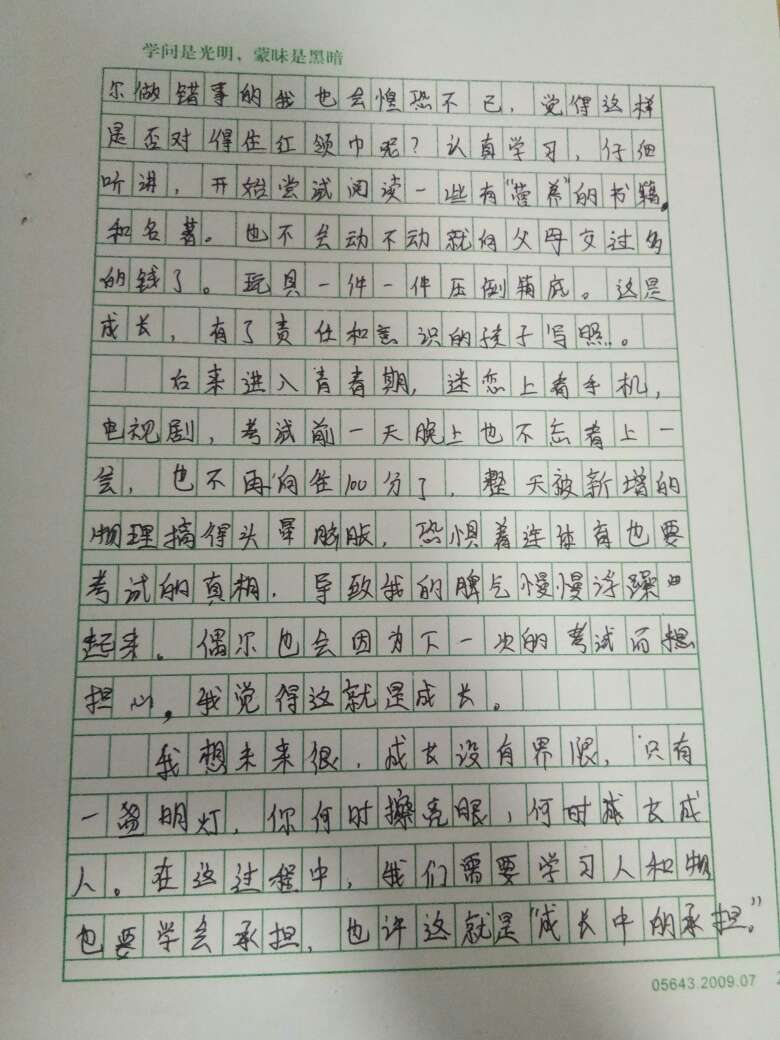 学问是光明，蒙昧是黑暗
尔做错事的我也会惶恐不已，觉得这样
是否对得住红领巾呢？认真学习，仔细
听讲，开始尝试阅读一些有“营养”的书籍，
和名著。也不会动不动就向父母交过多
的钱了。玩具一件一件压倒箱底。这是
成长，有了责任和意识的孩子写照。
后来进入青春期，迷恋上看手机，
电视剧，考试前一天晚上也不忘看上一
会，也不再向往100分了，整天被新增的
物理搞得头晕脑胀，恐惧着连体育也要
考试的真相，导致我的脾气慢慢浮躁
起来。偶尔也会因为下一次的考试而
担心，我觉得这就是成长。
我想未来很，成长没有界限，只有
一盏明灯，你何时擦亮眼，何时成长成
人。在这过程中，我们需要学习人和物
也要学会承担，也许这就是“成长中的承担。”
05643.2009.07